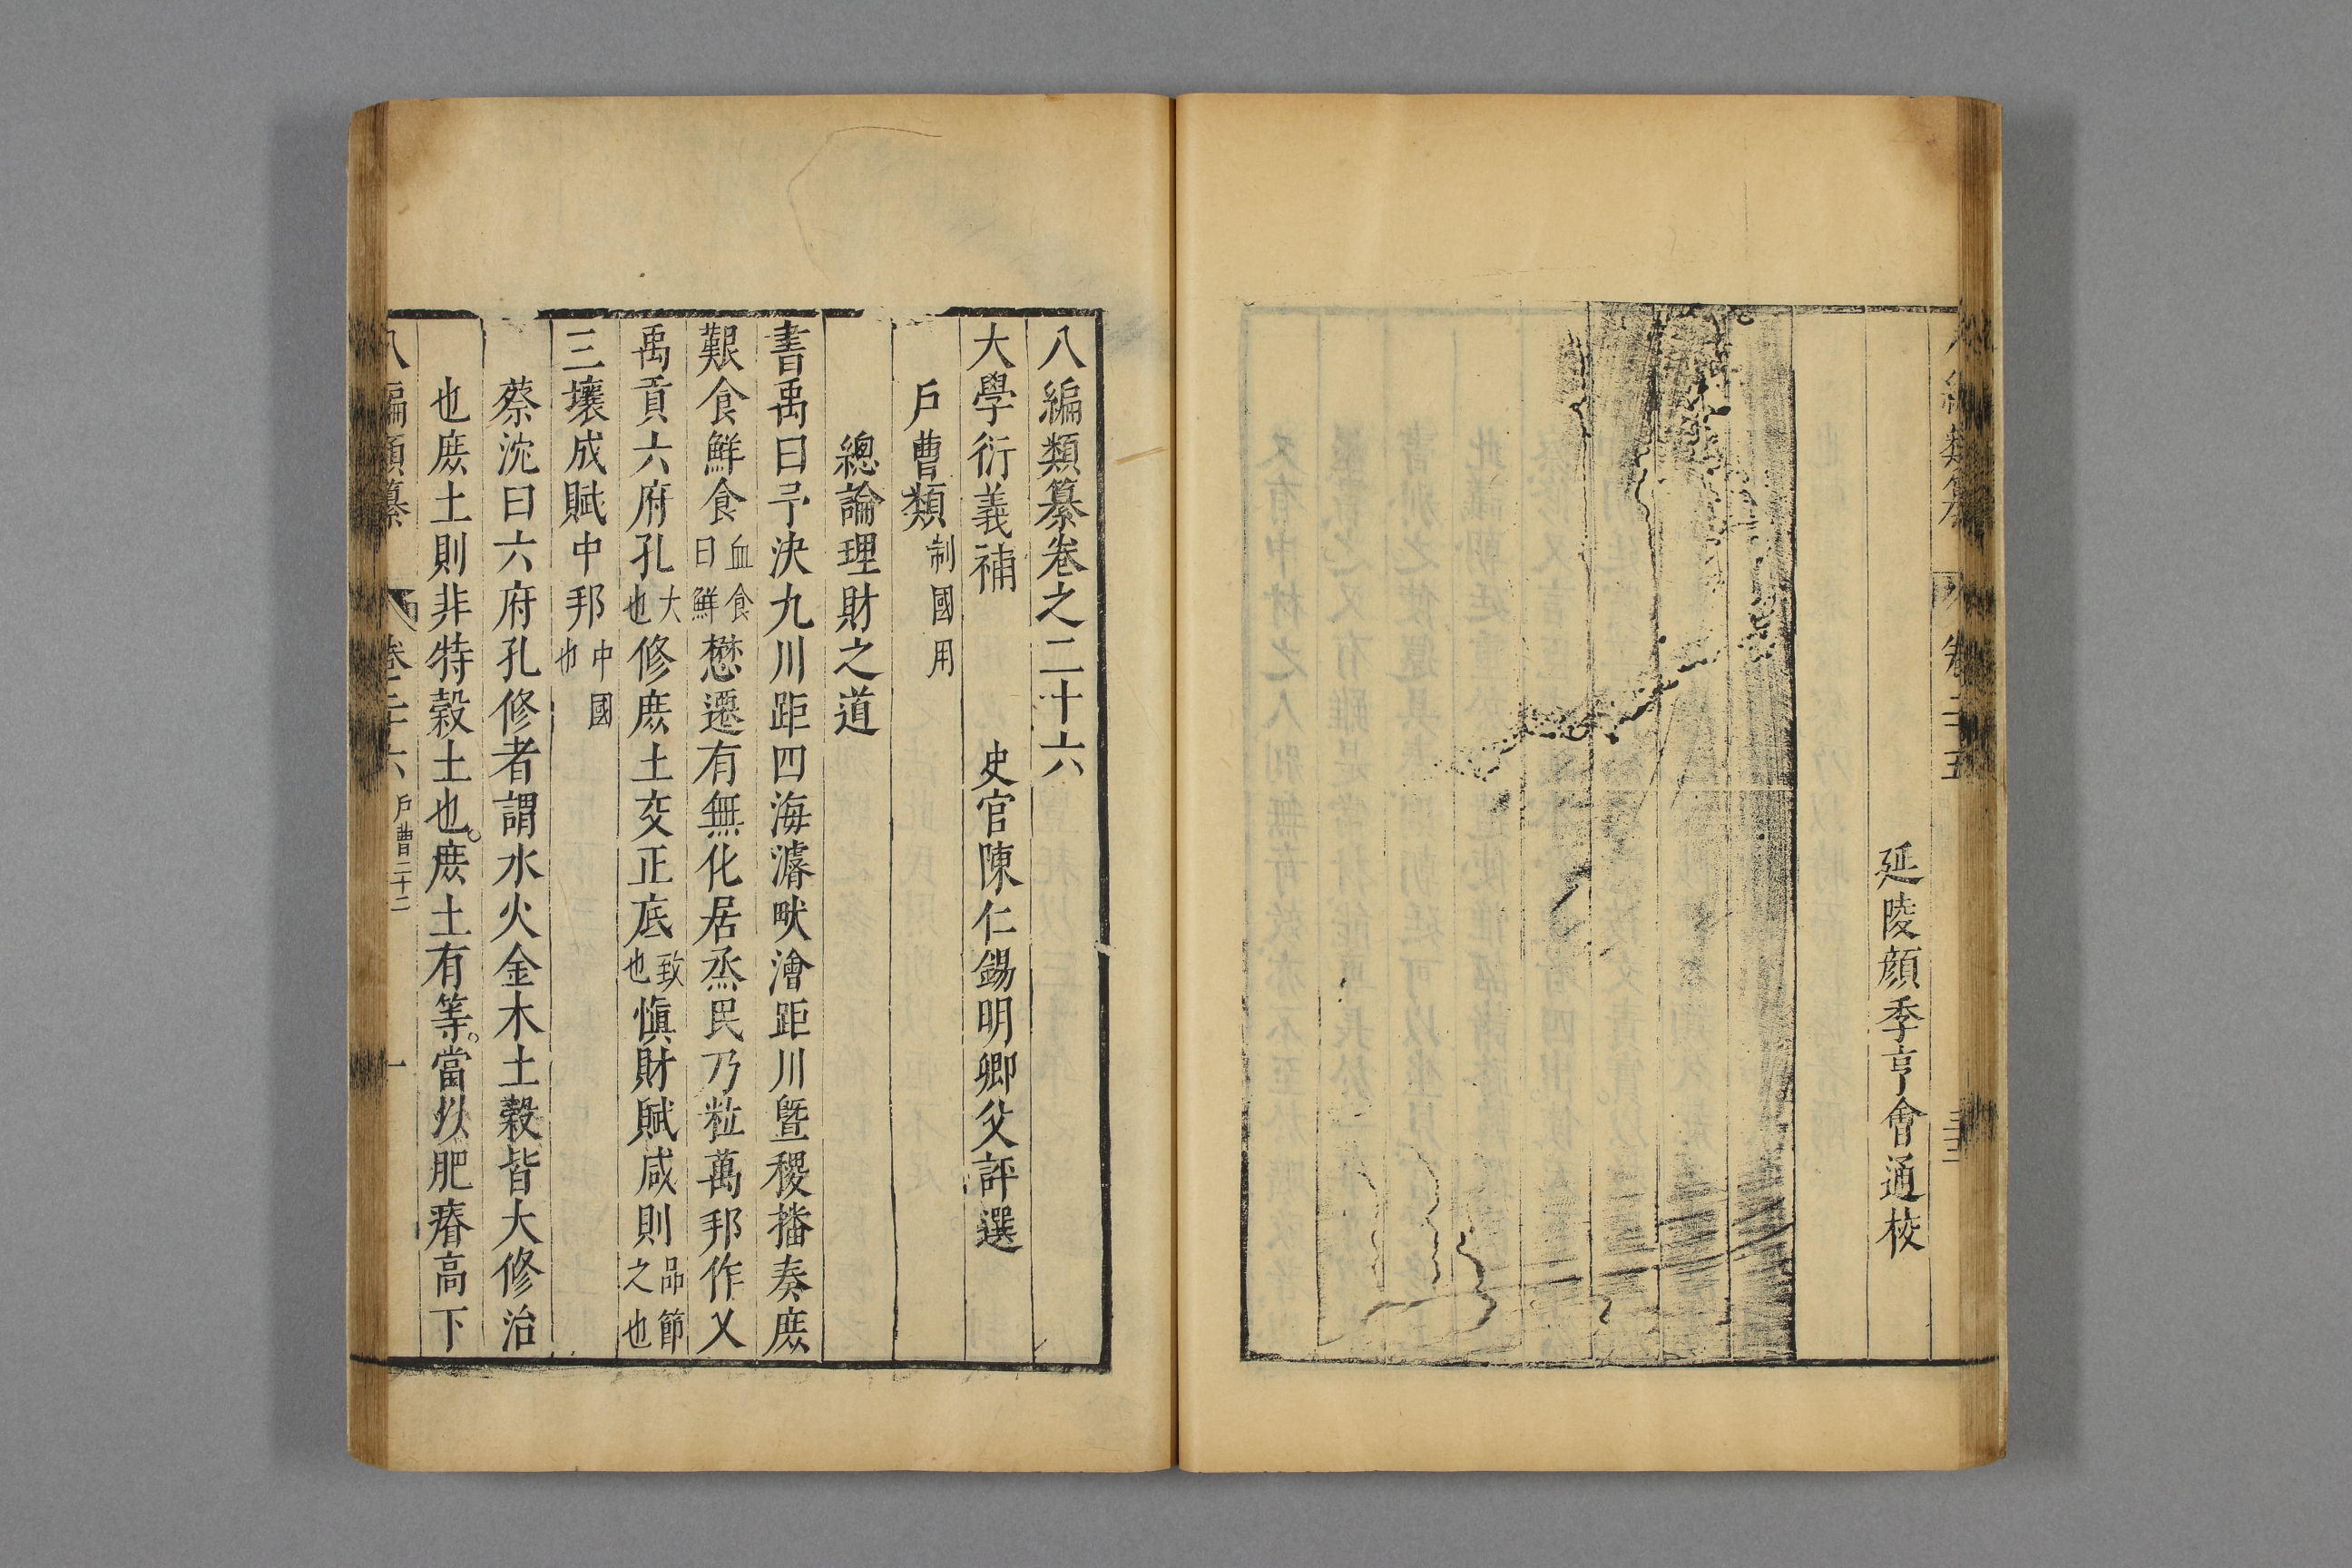 延陵顏季亨會通校
八編類纂卷之二十六
大學衍義補 史官陳仁錫明卿父評選
戶曹類制國用
總論理財之道
書禹曰予決九川距四海濬畎澮距川暨稷播奏庶
艱食鮮食血食曰鮮懋遷有無化居烝民乃粒萬邦作乂
禹貢六府孔大也修庶土交正底致也慎財賦咸則品節之也
三壤成賦中邦中國也
蔡沈曰六府孔修者謂水火金木土穀皆大修治
也庶土則非特穀土也。庶土有等。當以肥瘠高下
八編類纂 卷二十六 戶曹二十二 一